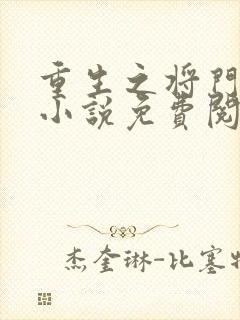 重生之将门
小说免费阅
杰奎琳-比塞特